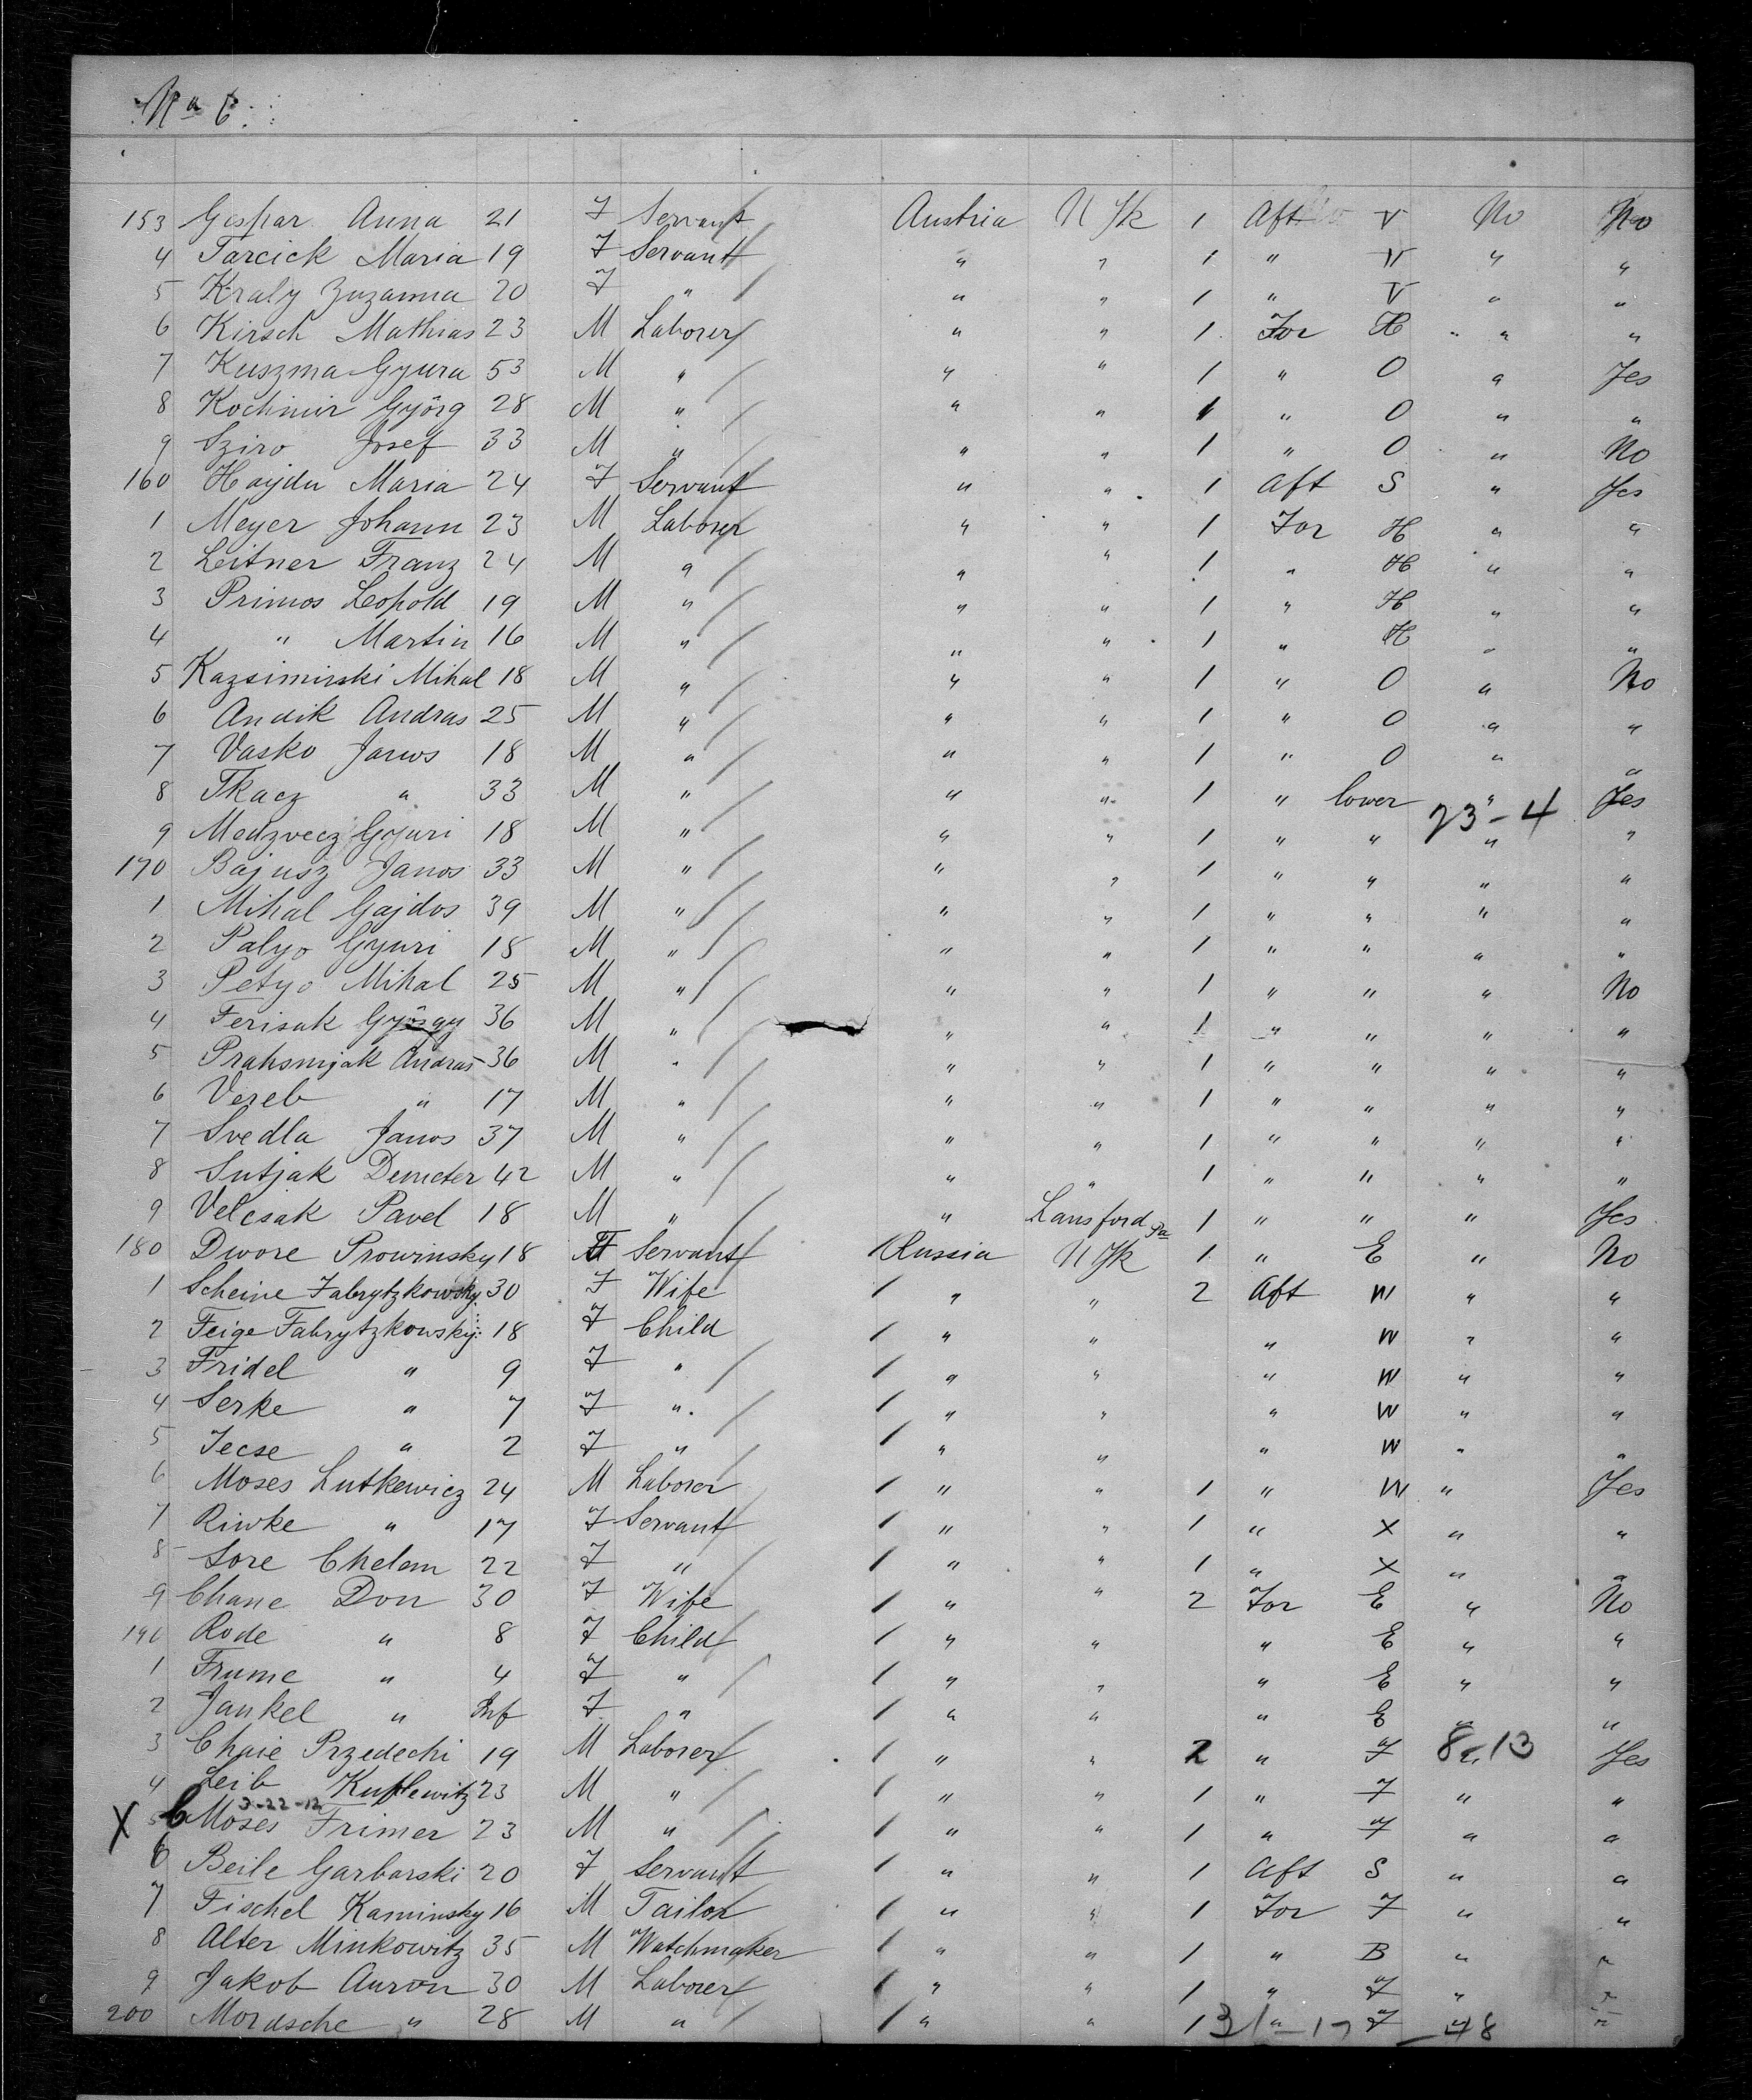 No 6.
153 Gaspar Anna 21 F Servant Austria N Yk 1 Aft V No No
4 Tarcick Maria 19 F Servant " " 1 " V " "
5 Kraly Zuzanna 20 F " " " 1 " V " "
6 Kirsch Mathias 23 M Laborer " " 1 For H " "
7 Kuszma Gyura 53 M " " " 1 " O " Yes
8 Kochimir Györg 28 M " " " 1 " O " "
9 Sziro Josef 33 M " " " 1 " O " No
160 Hajdu Maria 24 F Servant " " 1 Aft S " Yes
1 Meyer Johann 23 M Laborer " " 1 For H " "
2 Leitner Franz 24 M " " " 1 " H " "
3 Primos Leopold 19 M " " " 1 " H " "
4 " Martin 16 M " " " 1 " H " "
5 Kazsimirski Mihal 18 M " " " 1 " O " No
6 Andik Andras 25 M " " " 1 " O " "
7 Vasko Janos 18 M " " " 1 " O " "
8 Tkacz " 33 M " " " 1 " lower " Yes
23-4
9 Medzvecz Gyuri 18 M " " " 1 " " " "
170 Bajusz Janos 33 M " " " 1 " " " "
1 Mihal Gajdos 39 M " " " 1 " " " "
2 Palyo Gyuri 18 M " " " 1 " " " "
3 Petyo Mihal 25 M " " " 1 " " " No
4 Ferisak György 36 M " " " 1 " " " "
5 Prahsnyak Andras 36 M " " " 1 " " " "
6 Vereb " 17 M " " " 1 " " " "
7 Svedla Janos 37 M " " " 1 " " " "
8 Sutjak Demeter 42 M " " " 1 " " " "
9 Velcsak Pavel 18 M " " Lansford Pa 1 " " " Yes
180 Dwore Prowinsky 18 F Servant Russia N Yk 1 " E " No
1 Scheine Fabrytzkowsky 30 F Wife " " 2 Aft W " "
2 Feige Fabrytzkowsky 18 F Child " " " W " "
3 Fridel " 9 F " " " " W " "
4 Serke " 7 F " " " " W " "
5 Jecse " 2 F " " " " W " "
6 Moses Lutkewicz 24 M Laborer " " 1 " W " Yes
7 Riwke " 17 F Servant " " 1 " X " "
8 Sore Chelem 22 F " " " 1 " X " "
9 Chane Don 30 F Wife " " 2 For E " No
190 Rode " 8 F Child " " " E " "
1 Frume " 4 F " " " " E " "
2 Jankel " Inf F " " " " E " "
3 Chaie Przedechi 19 M Laborer " " 2 " F " Yes
8-13
4 Leib Kuflewitz 23 M " " " 1 " F " "
3-22-12
X 5 Moses Frimer 23 M " " " 1 " F " "
6 Beile Garbarski 20 F Servant " " 1 Aft S " "
7 Fischel Kaminsky 16 M Tailor " " 1 For F " "
8 Alter Minkowitz 35 M Watchmaker " " 1 " B " "
9 Jakob Auron 30 M Laborer " " 1 " F " "
200 Mordsche " 28 M " " " 1 " F " "